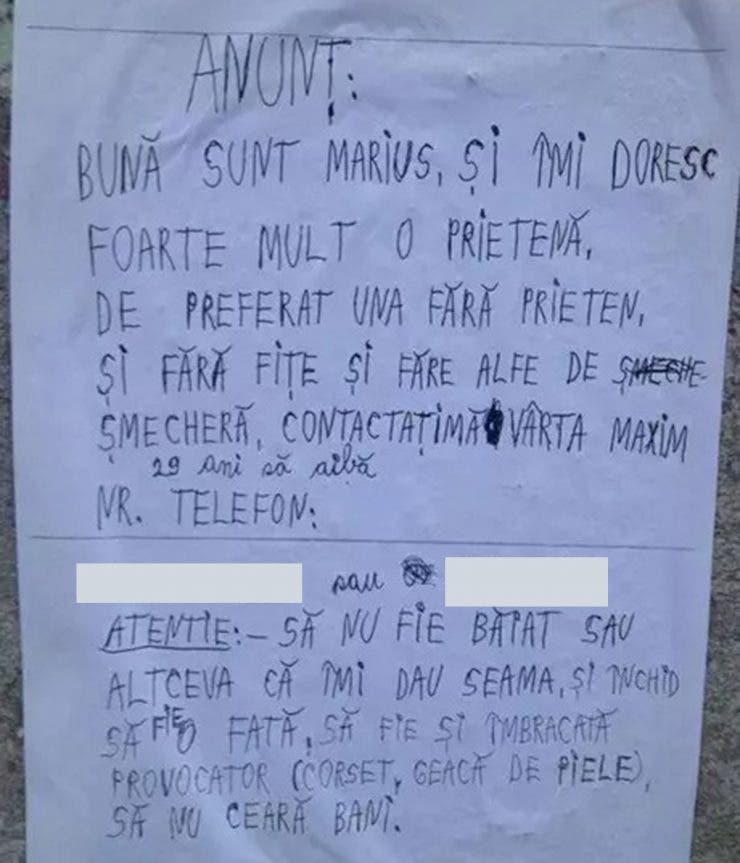 ANUNȚ:
BUNĂ SUNT MARIUS, ȘI ÎMI DORESC
FOARTE MULT O PRIETENĂ,
DE PREFERAT UNA FĂRĂ PRIETEN,
ȘI FĂRĂ FIȚE ȘI FĂRE ALFE DE ȘMECHE-
ȘMECHERĂ, CONTACTAȚIMĂ VÂRTA MAXIM
29 ani să aibă
NR. TELEFON:
sau
ATENTIE:- SĂ NU FIE BĂIAT SAU
ALTCEVA CĂ ÎMI DAU SEAMA, ȘI ÎNCHID
SĂ FIE O FATĂ, SĂ FIE ȘI ÎMBRACATĂ
PROVOCATOR (CORSET, GEACĂ DE PIELE),
SĂ NU CEARĂ BANI.